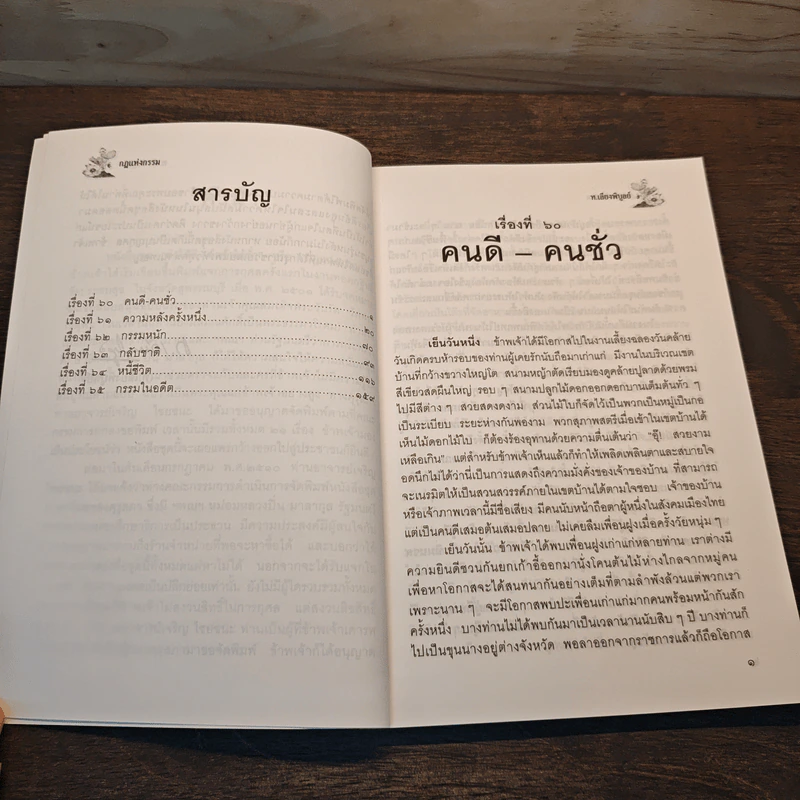 กฎแห่งกรรม
สารบัญ
เรื่องที่ ๖๐ คนดี-คนชั่ว............๑
เรื่องที่ ๖๑ ความหลังครั้งหนึ่ง............๒๐
เรื่องที่ ๖๒ กรรมหนัก............๗๐
เรื่องที่ ๖๓ กลับชาติ............๙๑
เรื่องที่ ๖๔ หนี้ชีวิต............๑๑๖
เรื่องที่ ๖๕ กรรมในอดีต............๑๕๙
ท.เลียงพิบูลย์
เรื่องที่ ๖๐
คนดี – คนชั่ว
เย็นวันหนึ่ง ข้าพเจ้าได้มีโอกาสไปในงานเลี้ยงฉลองวันคล้าย
วันเกิดครบห้ารอบของท่านผู้เคยรักนับถือมาเก่าแก่ มีงานในบริเวณเขต
บ้านที่กว้างขวางใหญ่โต สนามหญ้าตัดเรียบมองดูคล้ายปูลาดด้วยพรม
สีเขียวสดผืนใหญ่ รอบ ๆ สนามปลูกไม้ดอกออกดอกบานเต็มต้นทั่ว ๆ
ไปมีสีต่าง ๆ สวยสดงดงาม ส่วนไม้ใบก็จัดไว้เป็นพวกเป็นหมู่เป็นกอ
เป็นระเบียบ ระยะห่างกันพองาม พวกสุภาพสตรีเมื่อเข้าในเขตบ้านได้
เห็นไม้ดอกไม้ใบ ก็ต้องร้องอุทานด้วยความตื่นเต้นว่า "อุ๊! สวยงาม
เหลือเกิน" แต่สำหรับข้าพเจ้าเห็นแล้วก็ทำให้เพลิดเพลินตาและสบายใจ
อดนึกไม่ได้ว่านี่เป็นการแสดงถึงความมั่งคั่งของเจ้าของบ้าน ที่สามารถ
จะเนรมิตให้เป็นสวนสวรรค์ภายในเขตบ้านได้ตามใจชอบ เจ้าของบ้าน
หรือเจ้าภาพเวลานี้มีชื่อเสียง มีคนนับหน้าถือตาผู้หนึ่งในสังคมเมืองไทย
แต่เป็นคนดีเสมอต้นเสมอปลาย ไม่เคยลืมเพื่อนฝูงเมื่อครั้งวัยหนุ่ม ๆ
เย็นวันนั้น ข้าพเจ้าได้พบเพื่อนฝูงเก่าแก่หลายท่าน เราต่างมี
ความยินดีชวนกันยกเก้าอี้ออกมานั่งโคนต้นไม้ห่างไกลจากหมู่คน
เพื่อหาโอกาสจะได้สนทนากันอย่างเต็มที่ตามลำพังล้วนแต่พวกเรา
เพราะนาน ๆ จะมีโอกาสพบปะเพื่อนเก่าแก่มากคนพร้อมหน้ากันสัก
ครั้งหนึ่ง บางท่านไม่ได้พบกันมาเป็นเวลานานนับสิบ ๆ ปี บางท่านก็
ไปเป็นขุนนางอยู่ต่างจังหวัด พอลาออกจากราชการแล้วก็ถือโอกาส
๑